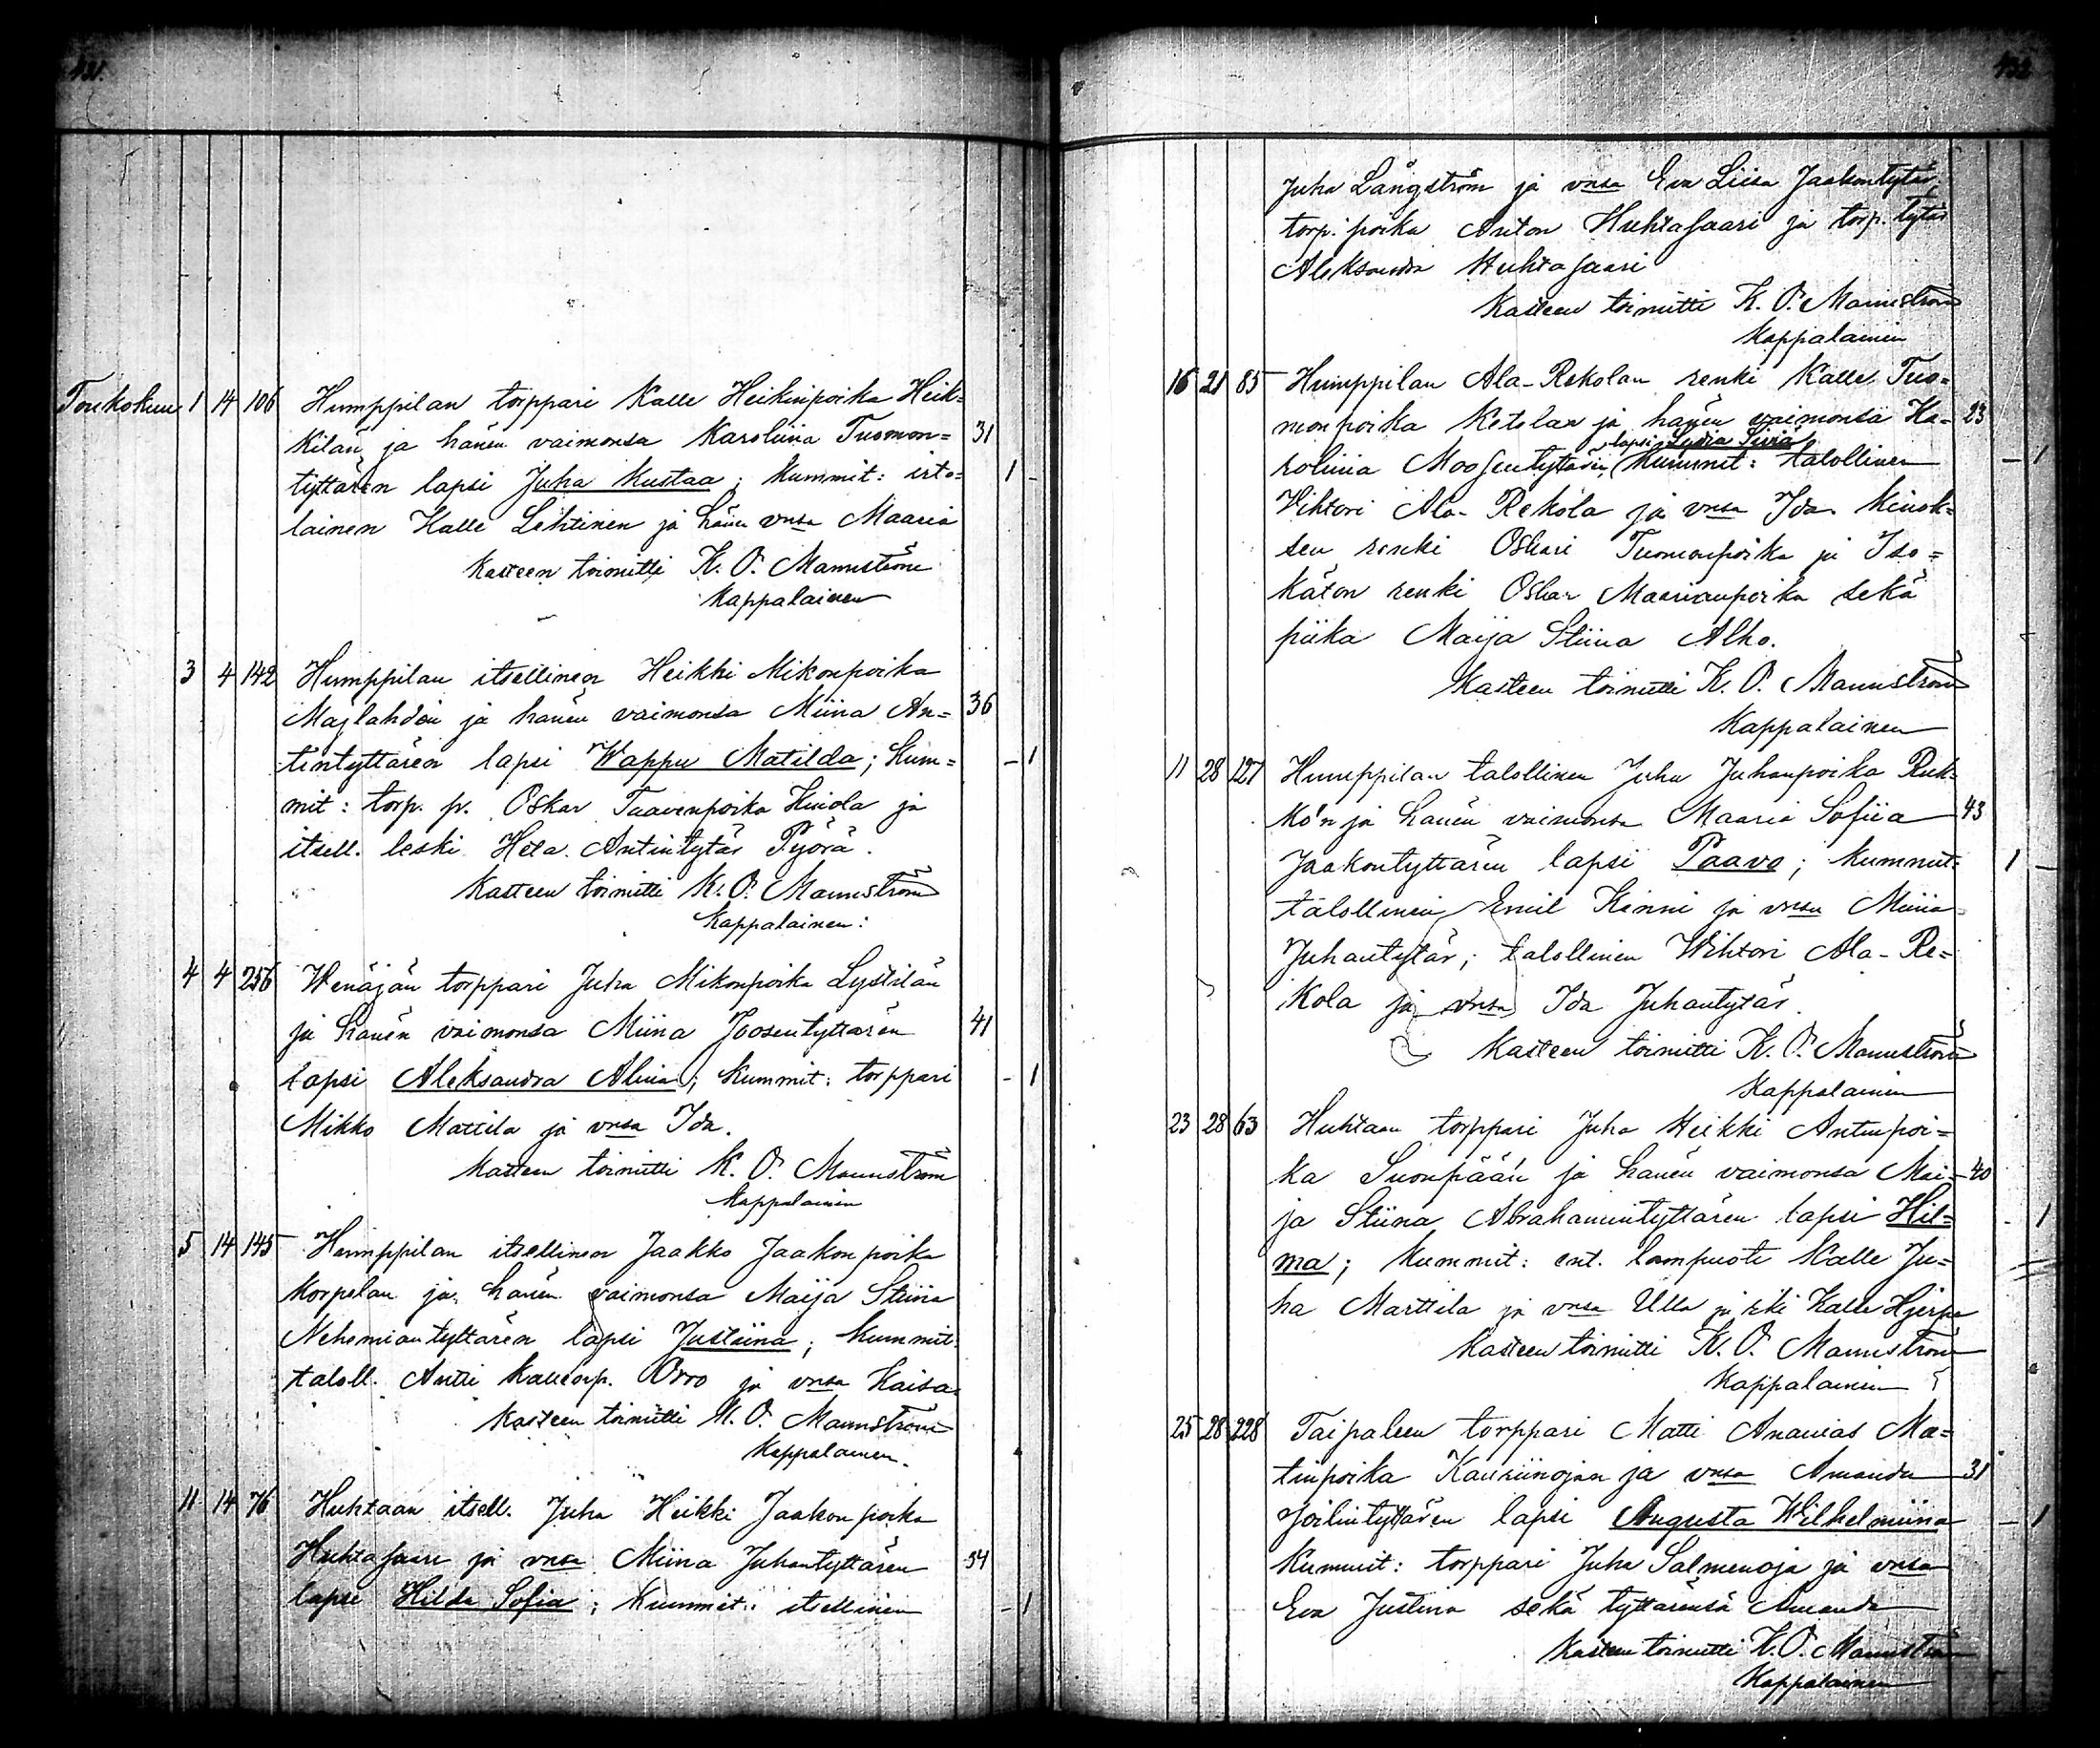 431.
Toukokuu 1 14 106 Humppilan torppari Kalle Heikinpoika Heik=
kilän ja hänen vaimonsa Karoliina Tuomon= 31
tyttären lapsi Juha Kustaa; Kummit: irto= 1 -
lainen Kalle Lehtinen ja hänen vmsa Maaria
Kasteen toimitti K. O. Mannström
Kappalainen
3 4 142 Humppilan itsellinen Heikki Mikonpoika
Majlahden ja hänen vaimonsa Miina An= 36
tintyttären lapsi Wappu Matilda; Kum= - 1
mit: torp. p. Oskar Taavenpoika Huiola ja
itsell. leski Heta Antintytär Pyörä.
Kasteen toimitti K. O. Mannström
Kappalainen:
4 4 256 Wenäjän torppari Juha Mikonpoika Lystilän
ja hänen vaimonsa Miina Joosentyttären 41
lapsi Aleksandra Aliina; Kummit: torppari - 1
Mikko Mattila ja vmsa Ida.
Kasteen toimitti K. O. Mannström
Kappalainen
5 14 145 Humppilan itsellinen Jaakko Jaakonpoika
Korpelan ja hänen vaimonsa Maija Stiina
Nehemiantyttären lapsi Justiina; Kummit:
taloll. Antti Orro ja vmsa Kaisa.
Kasteen toimitti K. O. Mannström
Kappalainen.
11 14 76 Huhtaan itsell. Juha Heikki Jaakonpoika
Huhtasaari ja vmsa Miina Juhantyttären 34
lapsi Hilda Sofia; Kummit: itsellinen - 1
432
Juha Långström ja vmsa Eva Liisa Jaakontytär,
torp. poika Anton Huhtasaari ja torp. tytär
Aleksandra Huhtasaari
Kasteen toimitti K. O. Mannström
Kappalainen
16 21 85 Humppilan Ala-Rekolan renki Kalle Tuo=
monpoika Ketolan ja hänen vaimonsa Ka= 23
lapsi Lydia Siviä
roliina Moosentyttären, Kummit: talollinen - 1
Vihtori Ala-Rekola ja vmsa Ida
sen renki Oskari Tuomonpoika ja Iso=
käton renki Oskar Maarianpoika sekä
piika Maija Stiina Alho.
Kasteen toimitti K. O. Mannström
Kappalainen
11 28 127 Humppilan talollinen Juha Juhanpoika Ruk=
ko'n ja hänen vaimonsa Maaria Sofiia 43
Jaakontyttären lapsi Paavo; Kummit: 1 -
talollinen Emil Kinni ja vmsa Miina
Juhantytär; talollinen Wihtori Ala-Re=
kola ja vmsa Ida Juhantytär.
Kasteen toimitti K. O. Mannström
Kappalainen
23 28 63 Huhtaan torppari Juha Heikki Antinpoi=
ka Suonpää'n ja hänen vaimonsa Mai= 40
ja Stiina Abrahamintyttären lapsi Hil= - 1
ma; Kummit: ent. lampuoti Kalle Ju=
ha Marttila ja vmsa Ulla ja rki Kalle Hjerpe
Kasteen toimitti K. O. Mannström
Kappalainen
25 28 228 Taipaleen torppari Matti Ananias Ma=
tinpoika Kauriinojan ja vmsa Amanda 31
Joilintyttären lapsi Augusta Wilhelmiina - 1
Kummit: torppari Juha Salmenoja ja vmsa
Eva Justina sekä tyttärensä Amanda
Kasteen toimitti K. O. Mannström
Kappalainen